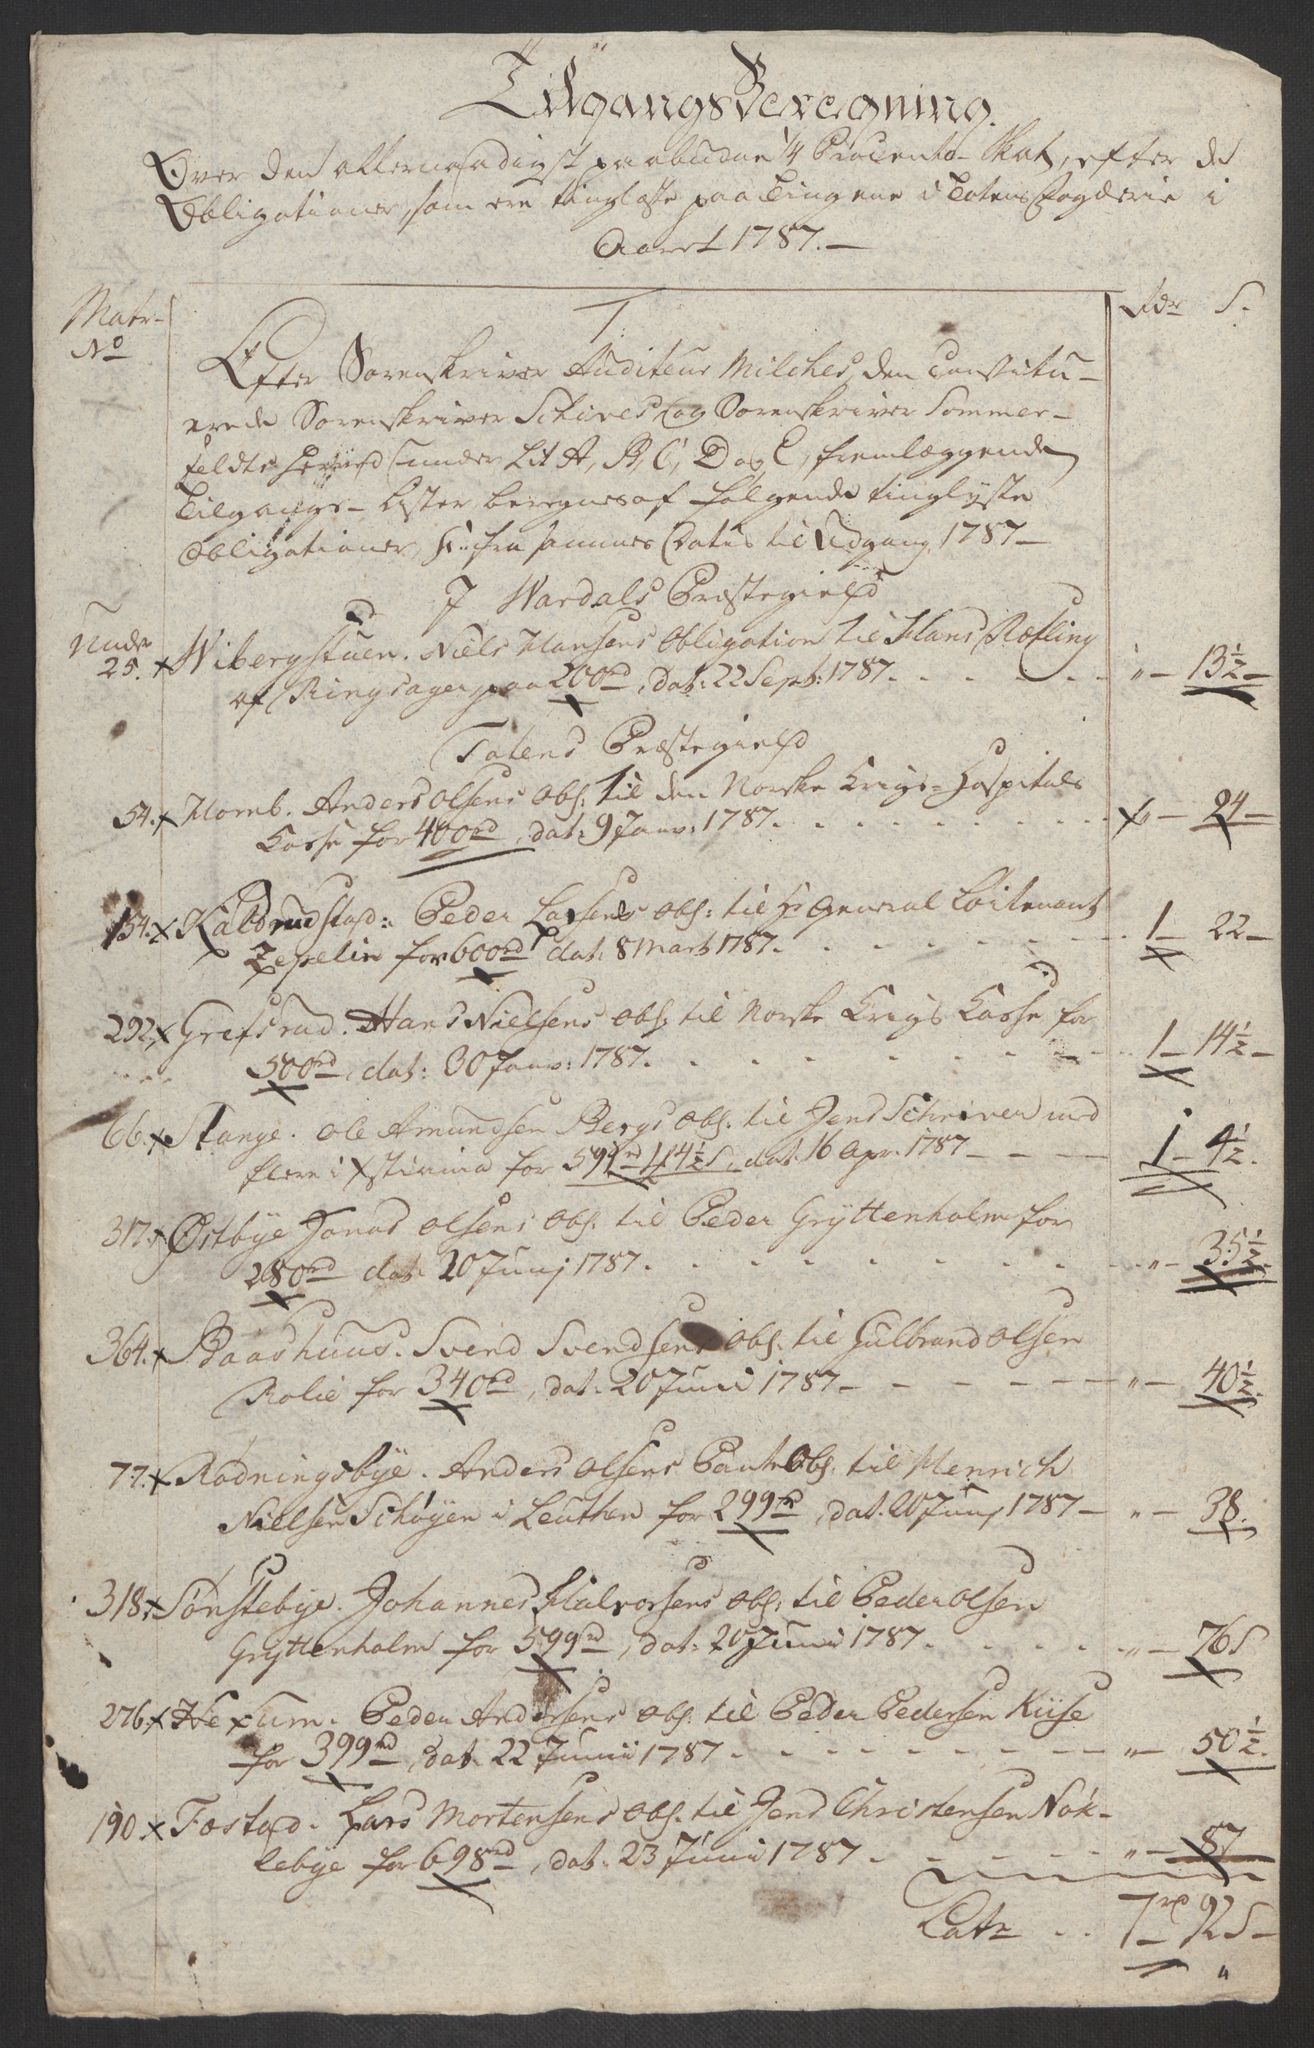 Tilgangs Beregning.
Over den allernaadigst paabudne 1/4 Procento Skat, efter de
Obligationer, som ere tinglæste paa Tingene i Totens Fogderie i
Aaret 1787.—
Matr- Rdr S.
No
Efter Sorenskriver Auditeur Milches, den Constitu-
erede Sorenskriver Schives og Sorenskriver Sommer-
feldts herved under Lit A, B, C, D og E, fremlæggende
Tilgangs- Lister beregnes af følgende tinglyste
Obligationer, fra sammes Datis til Udgang 1787—
I Wardals Præstegield
25. x Wibergstuen. Niels Hansens Obligation til Hans Ræfling
af Ringsager paa 200rd, dat: 22 Sept: 1787. " — 13½ —
Totens Præstegield
54. x Homb. Anders Olsens Obl: til den Norske Krigs-Hospitals
Casse for 400rd, dat: 9 Janv: 1787. " — 24 —
154. x Kaldrudstad: Peder Larsens Obl: til Hr General Løitenant
Zepelin for 600rd dat: 8 Marts 1787. 1 — 22 —
292. x Grefsrud. Hans Nielsens Obl: til Norske Krigs Casse for
500rd, dat: 30 Janv: 1787. 1 — 14½ —
66. x Stange. Ole Amundsen Bergs Obl. til Jens Schriver med
flere i Xstiania for 591rd 14½ S, dat: 16 Apr: 1787 — 1 — 4½.
317. x Østbye Jonas Olsens Obl. til Peder Gryttenholm for
280rd dat: 20 Junj 1787. " — 35½.
364. x Baashuus. Svend Svendsens Obl: til Gulbrand Olsen
Rolie for 340rd, dat: 20 Junii 1787 — " — 40½.
77. x Rødningsbye. Anders Olsens Pant Obl. til Henrich
Nielsen Schøyen i Leuthen for 299rd, dat. 20 Junj 1787 — " — 38.
318. x Sønstebye. Johannes Halvorsens Obl: til Peder Olsen
Gryttenholm for 599rd, dat: 20 Junii 1787. " — 76 S
276. x Hexum. Peder Andersens Obl: til Peder Pedersen Kiise
for 399rd, dat: 22 Junii 1787. " — 50½.
190. x Fostad. Lars Mortensens Obl: til Jens Christensen Nøk-
lebye for 698rd, dat: 23 Junii 1787. " — 87
Latr .. 7rd 92 S —